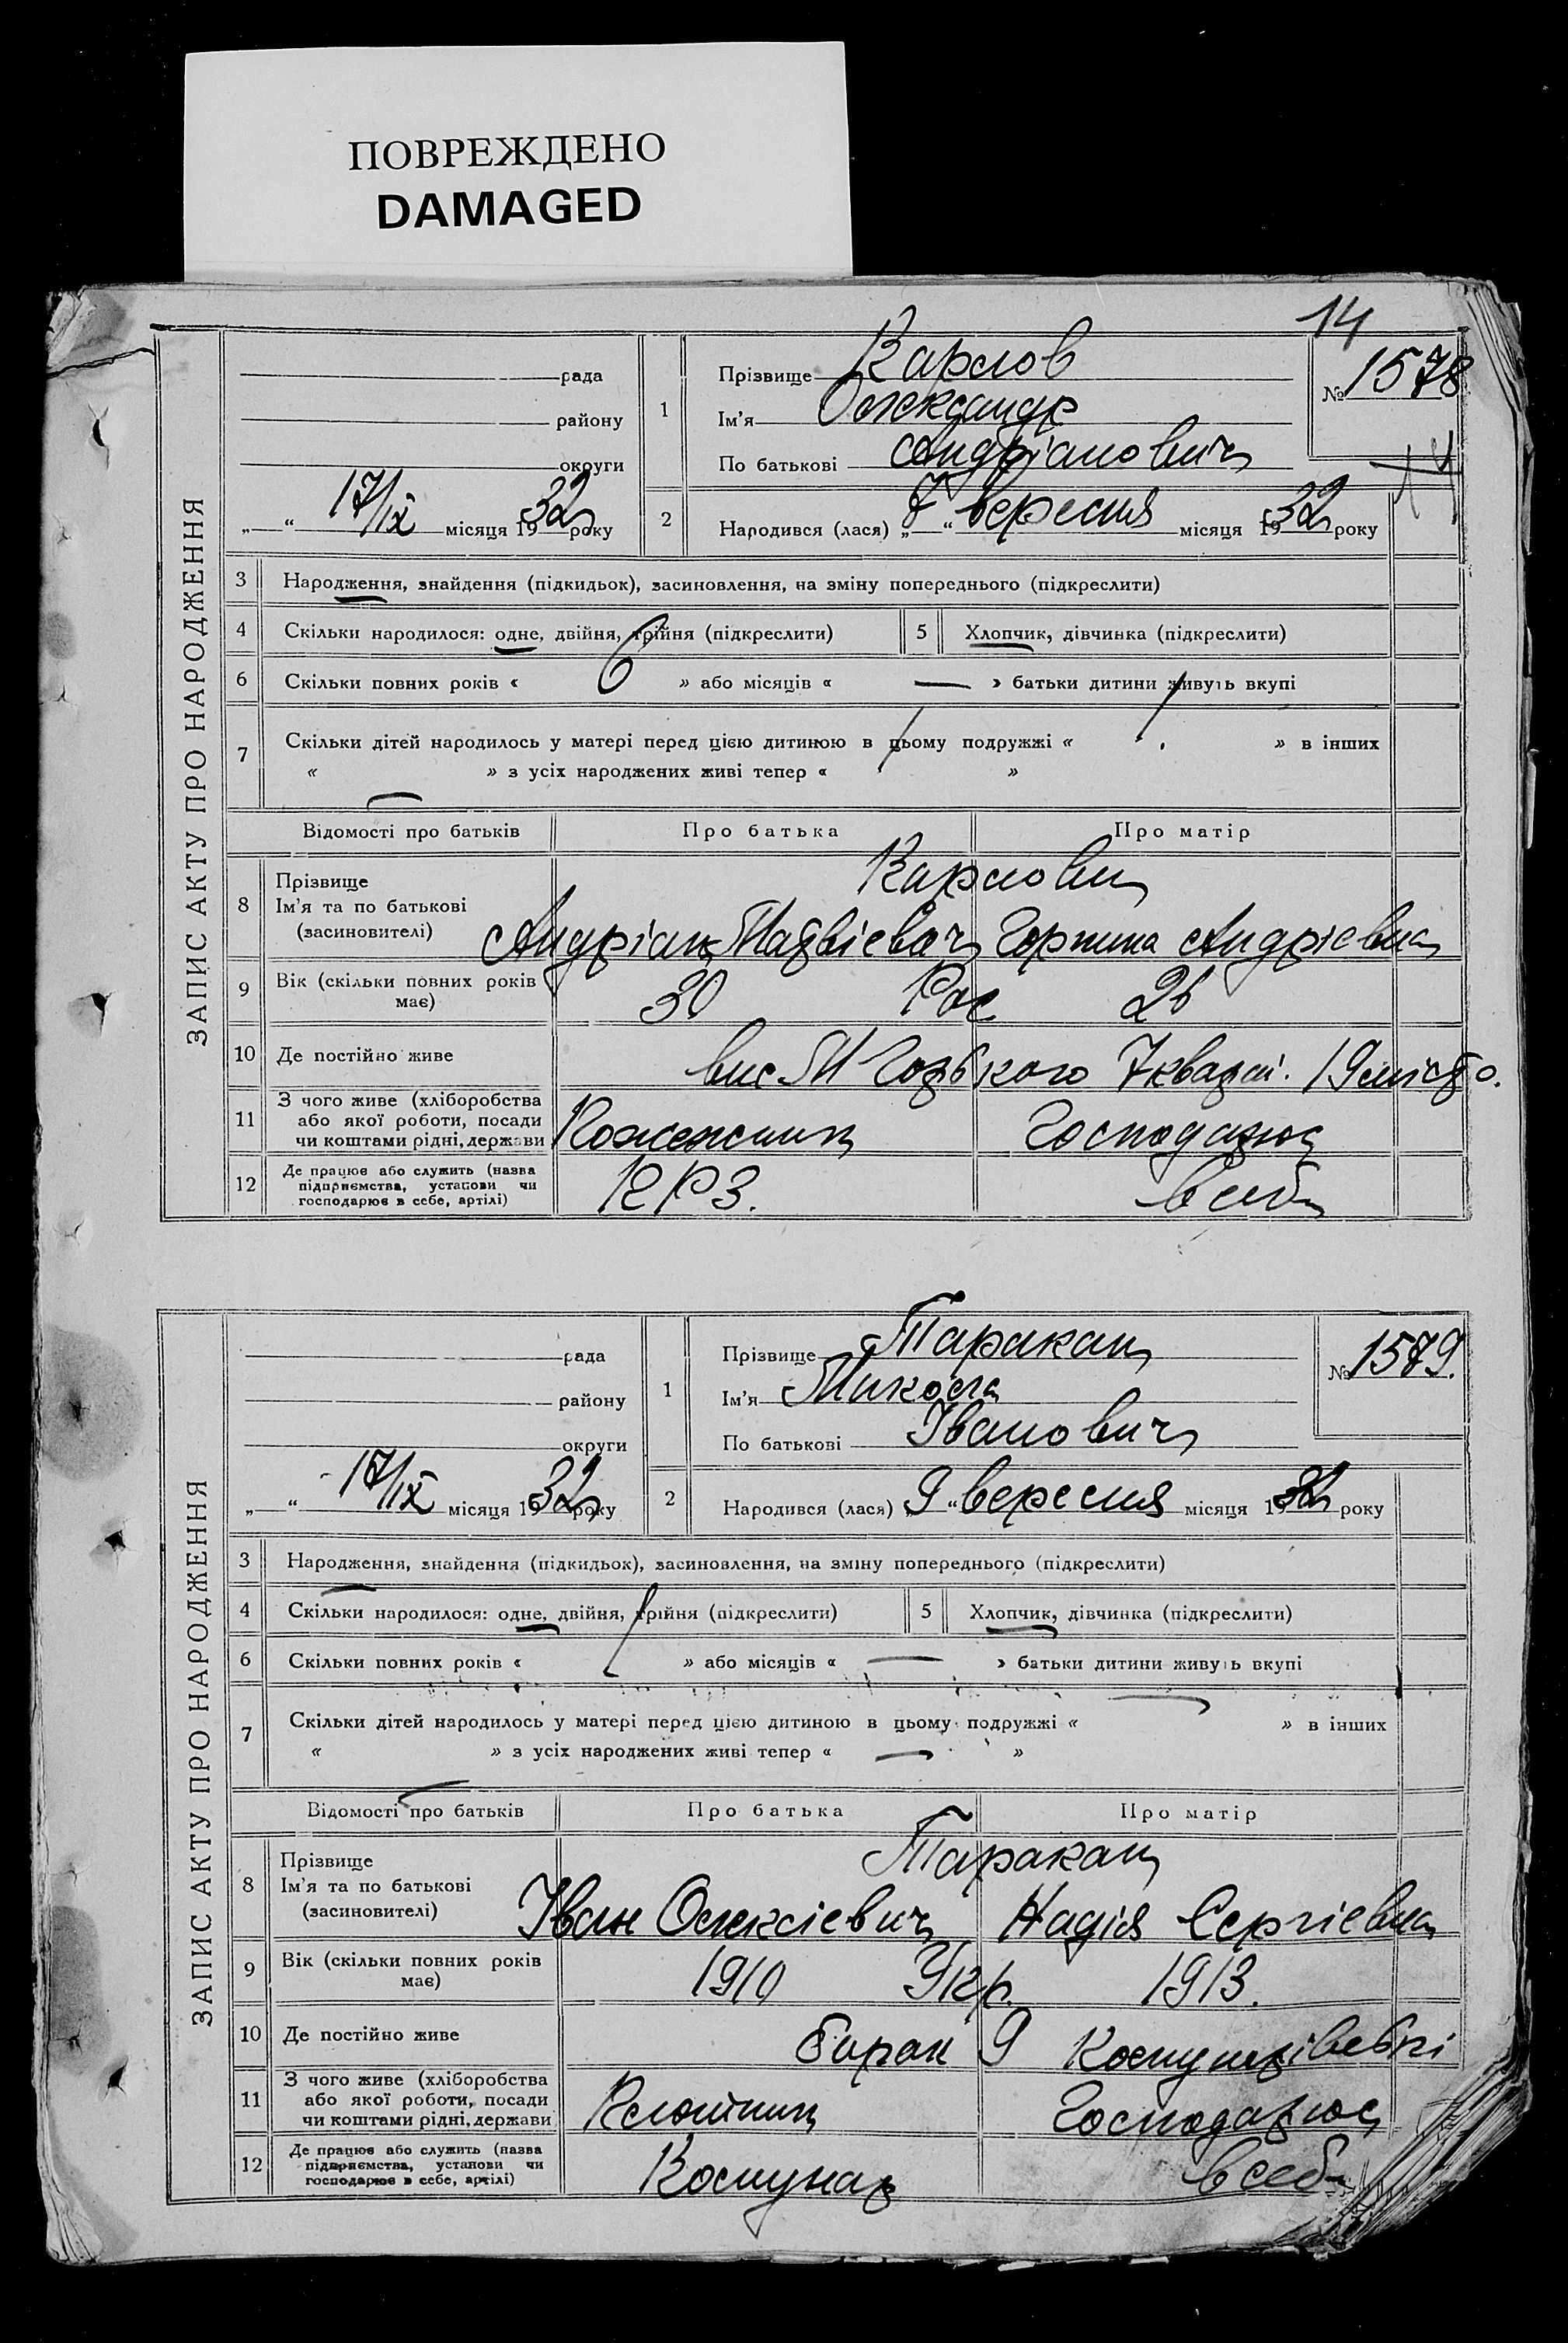 ПОВРЕЖДЕНО
DAMAGED
14
ЗАПИС АКТУ ПРО НАРОДЖЕННЯ
рада
району
округи
„ “ 17/IX місяця 1932 року
1 Прізвище Карлов
Ім'я Олександр
По батькові Андріанович
№ 1578
14
2 Народився (лася) „7“ вересня місяця 1932 року
3 Народження, знайдення (підкидьок), засиновлення, на зміну попереднього (підкреслити)
4 Скільки народилося: одне, двійня, трійня (підкреслити) 5 Хлопчик, дівчинка (підкреслити)
6 Скільки повних років « 6 » або місяців « — » батьки дитини живуть вкупі
7 Скільки дітей народилось у матері перед цією дитиною в цьому подружжі « » в інших
« » з усіх народжених живі тепер « »
Відомості про батьків Про батька Про матір
8 Прізвище
Ім'я та по батькові
(засиновителі)
Карлови
Андріан Матвієвич Горпина Андрієвна
9 Вік (скільки повних років
має)
30 Рос 26
10 Де постійно живе вис. М Горького 7 кварт. 19 місто.
11 З чого живе (хліборобства
або якої роботи, посади
чи коштами рідні, держави
Господарює
12 Де працює або служить (назва
підприємства, установи чи
господарює в себе, артілі)
КРЗ. в себе
ЗАПИС АКТУ ПРО НАРОДЖЕННЯ
рада
району
округи
„ “ 17/IX місяця 1932 року
1 Прізвище Таракан
Ім'я Микола
По батькові Іванович
№ 1579.
2 Народився (лася) „9“ вересня місяця 1932 року
3 Народження, знайдення (підкидьок), засиновлення, на зміну попереднього (підкреслити)
4 Скільки народилося: одне, двійня, трійня (підкреслити) 5 Хлопчик, дівчинка (підкреслити)
6 Скільки повних років « 1 » або місяців « — » батьки дитини живуть вкупі
7 Скільки дітей народилось у матері перед цією дитиною в цьому подружжі « — » в інших
« — » з усіх народжених живі тепер « — »
Відомості про батьків Про батька Про матір
8 Прізвище
Ім'я та по батькові
(засиновителі)
Таракан
Іван Олексієвич Надія Сергієвна
9 Вік (скільки повних років
має)
1910 Укр. 1913.
10 Де постійно живе барак 9
11 З чого живе (хліборобства
або якої роботи, посади
чи коштами рідні, держави
Господарює
12 Де працює або служить (назва
підприємства, установи чи
господарює в себе, артілі)
Комунар в себе